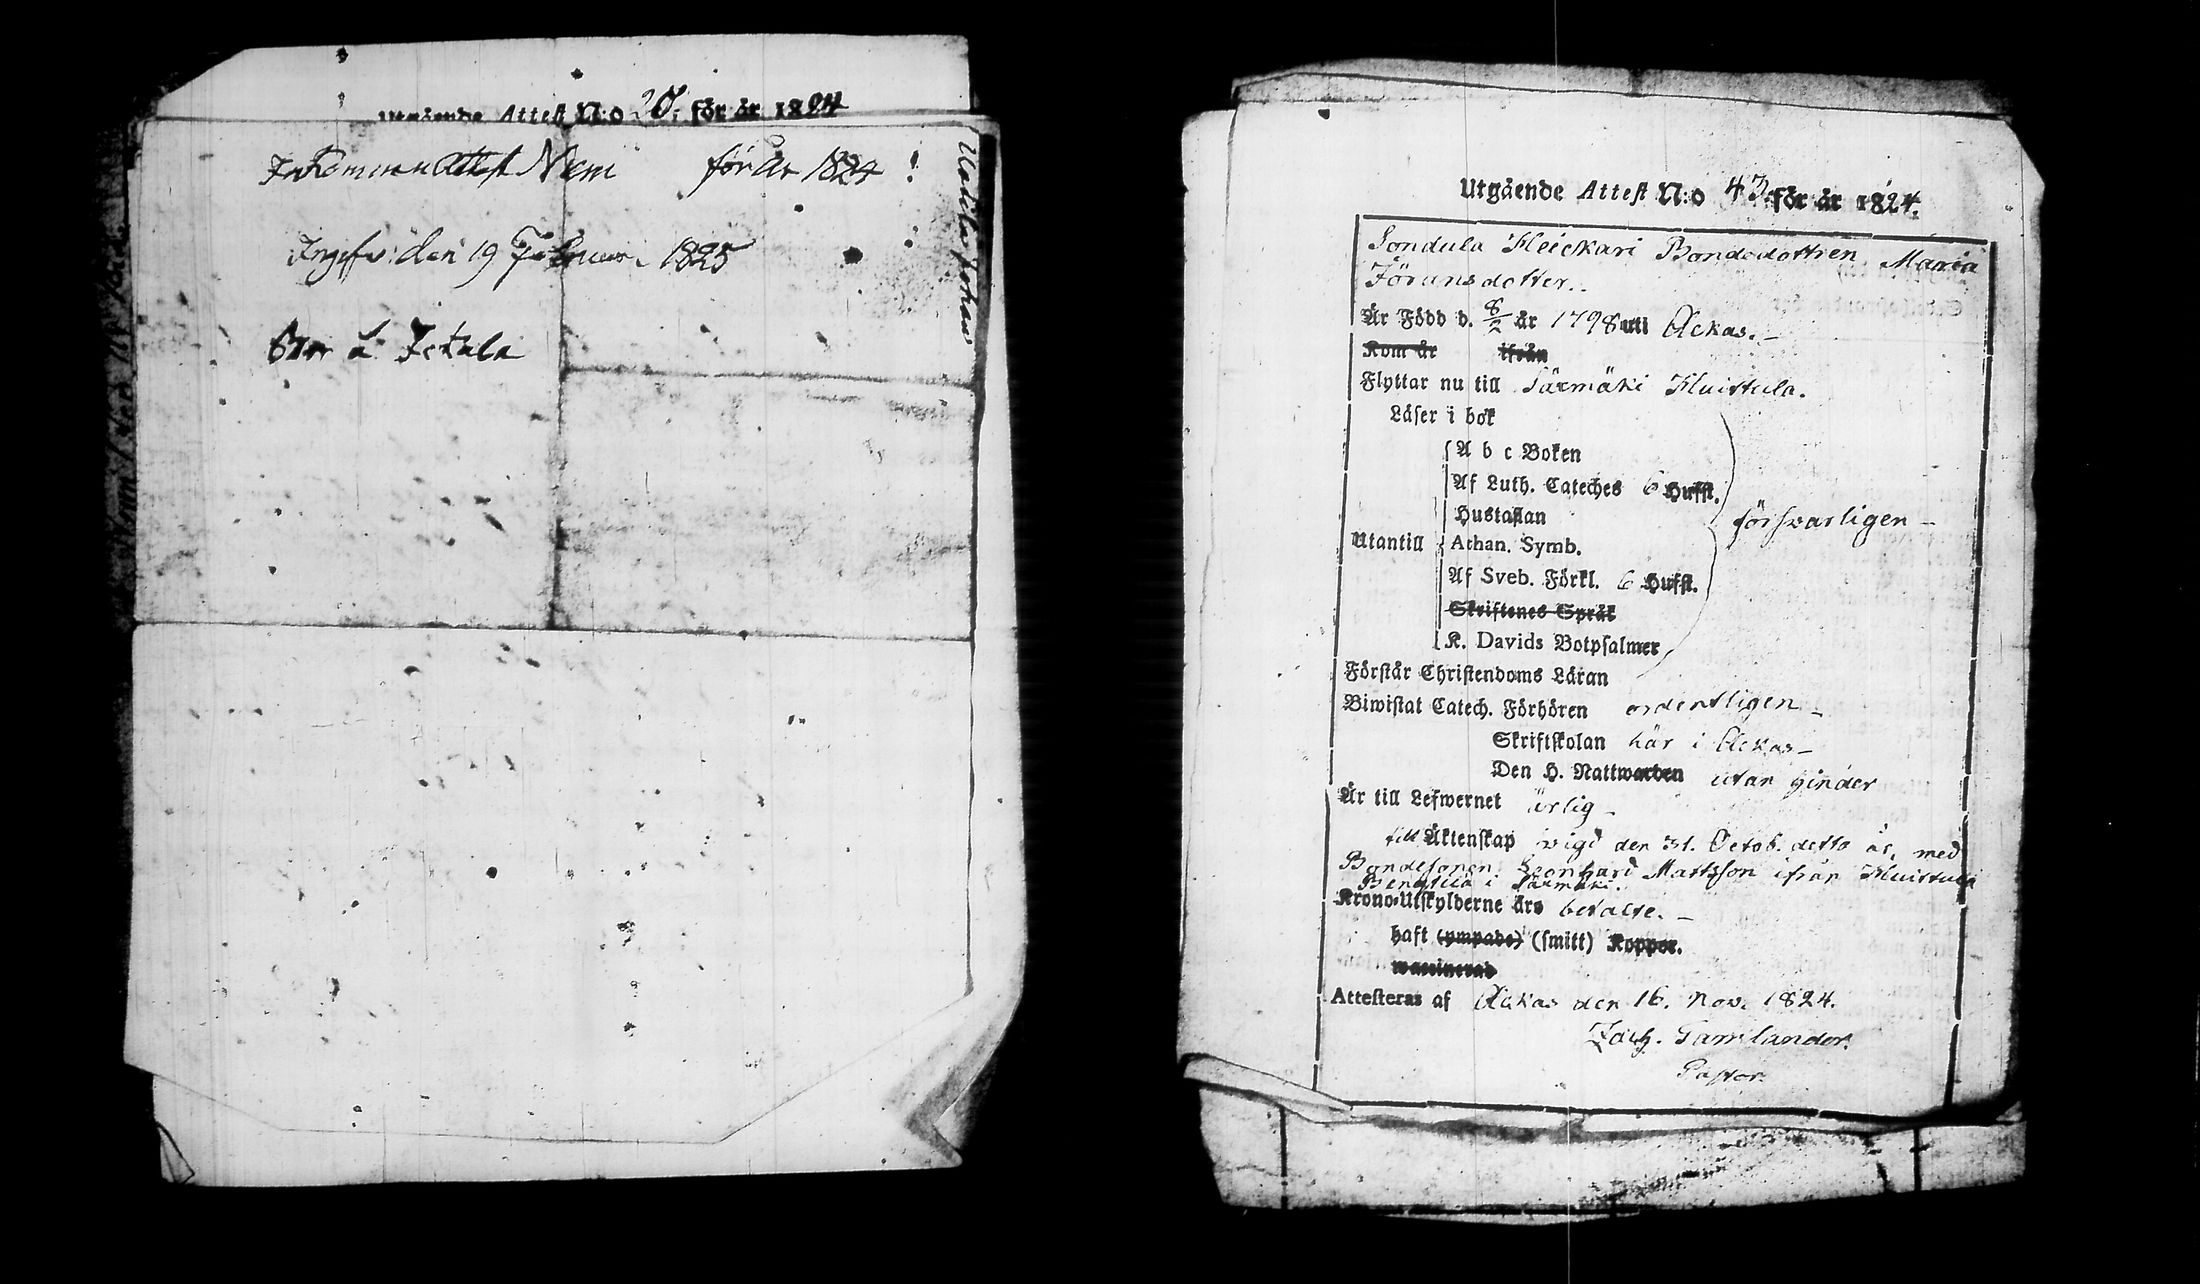 Utgående Attest N:o för år 1824
Inkommen Attest N:o för år 1824
Ingifv: den 19 Februar. 1825
Utgående Attest N:o 43 för år 1824.
Sondula Heickari Bondedottren Maria
Jöransdotter.
Är Född d. 8/2 år 1798 uti Ackas.
Kom år ifrån
Flyttar nu till Särmäki Huittula.
Läser i bok
A b c Boken
Af Luth. Cateches 6 Hufst.
Hustaflan
försvarligen
Utantill
Athan. Symb.
Af Sveb. Förkl. 6 Hufst.
Skriftenes Språk
K. Davids Botpsalmer
Förstår Christendoms Läran
Biwistat Catech. Förhören ordentligen
Skriftskolan här i Ackas
Den H. Nattwarden utan hinder
Är till Lefwernet ärlig
till Äktenskap vigd den 31. Octob. detta år, med
Bondesonen Leonhard Mattsson ifrån Huittula
Bengtilä i Särmäki.
Krono-Utskylderne äro betalte.
haft (ympade) (smitt) Koppor.
waccinerad
Attesteras af Ackas den 16. Nov. 1824.
Zach. Pastor.